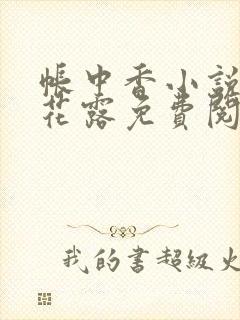 帳中香小說
花露免費閱
我的書超級火